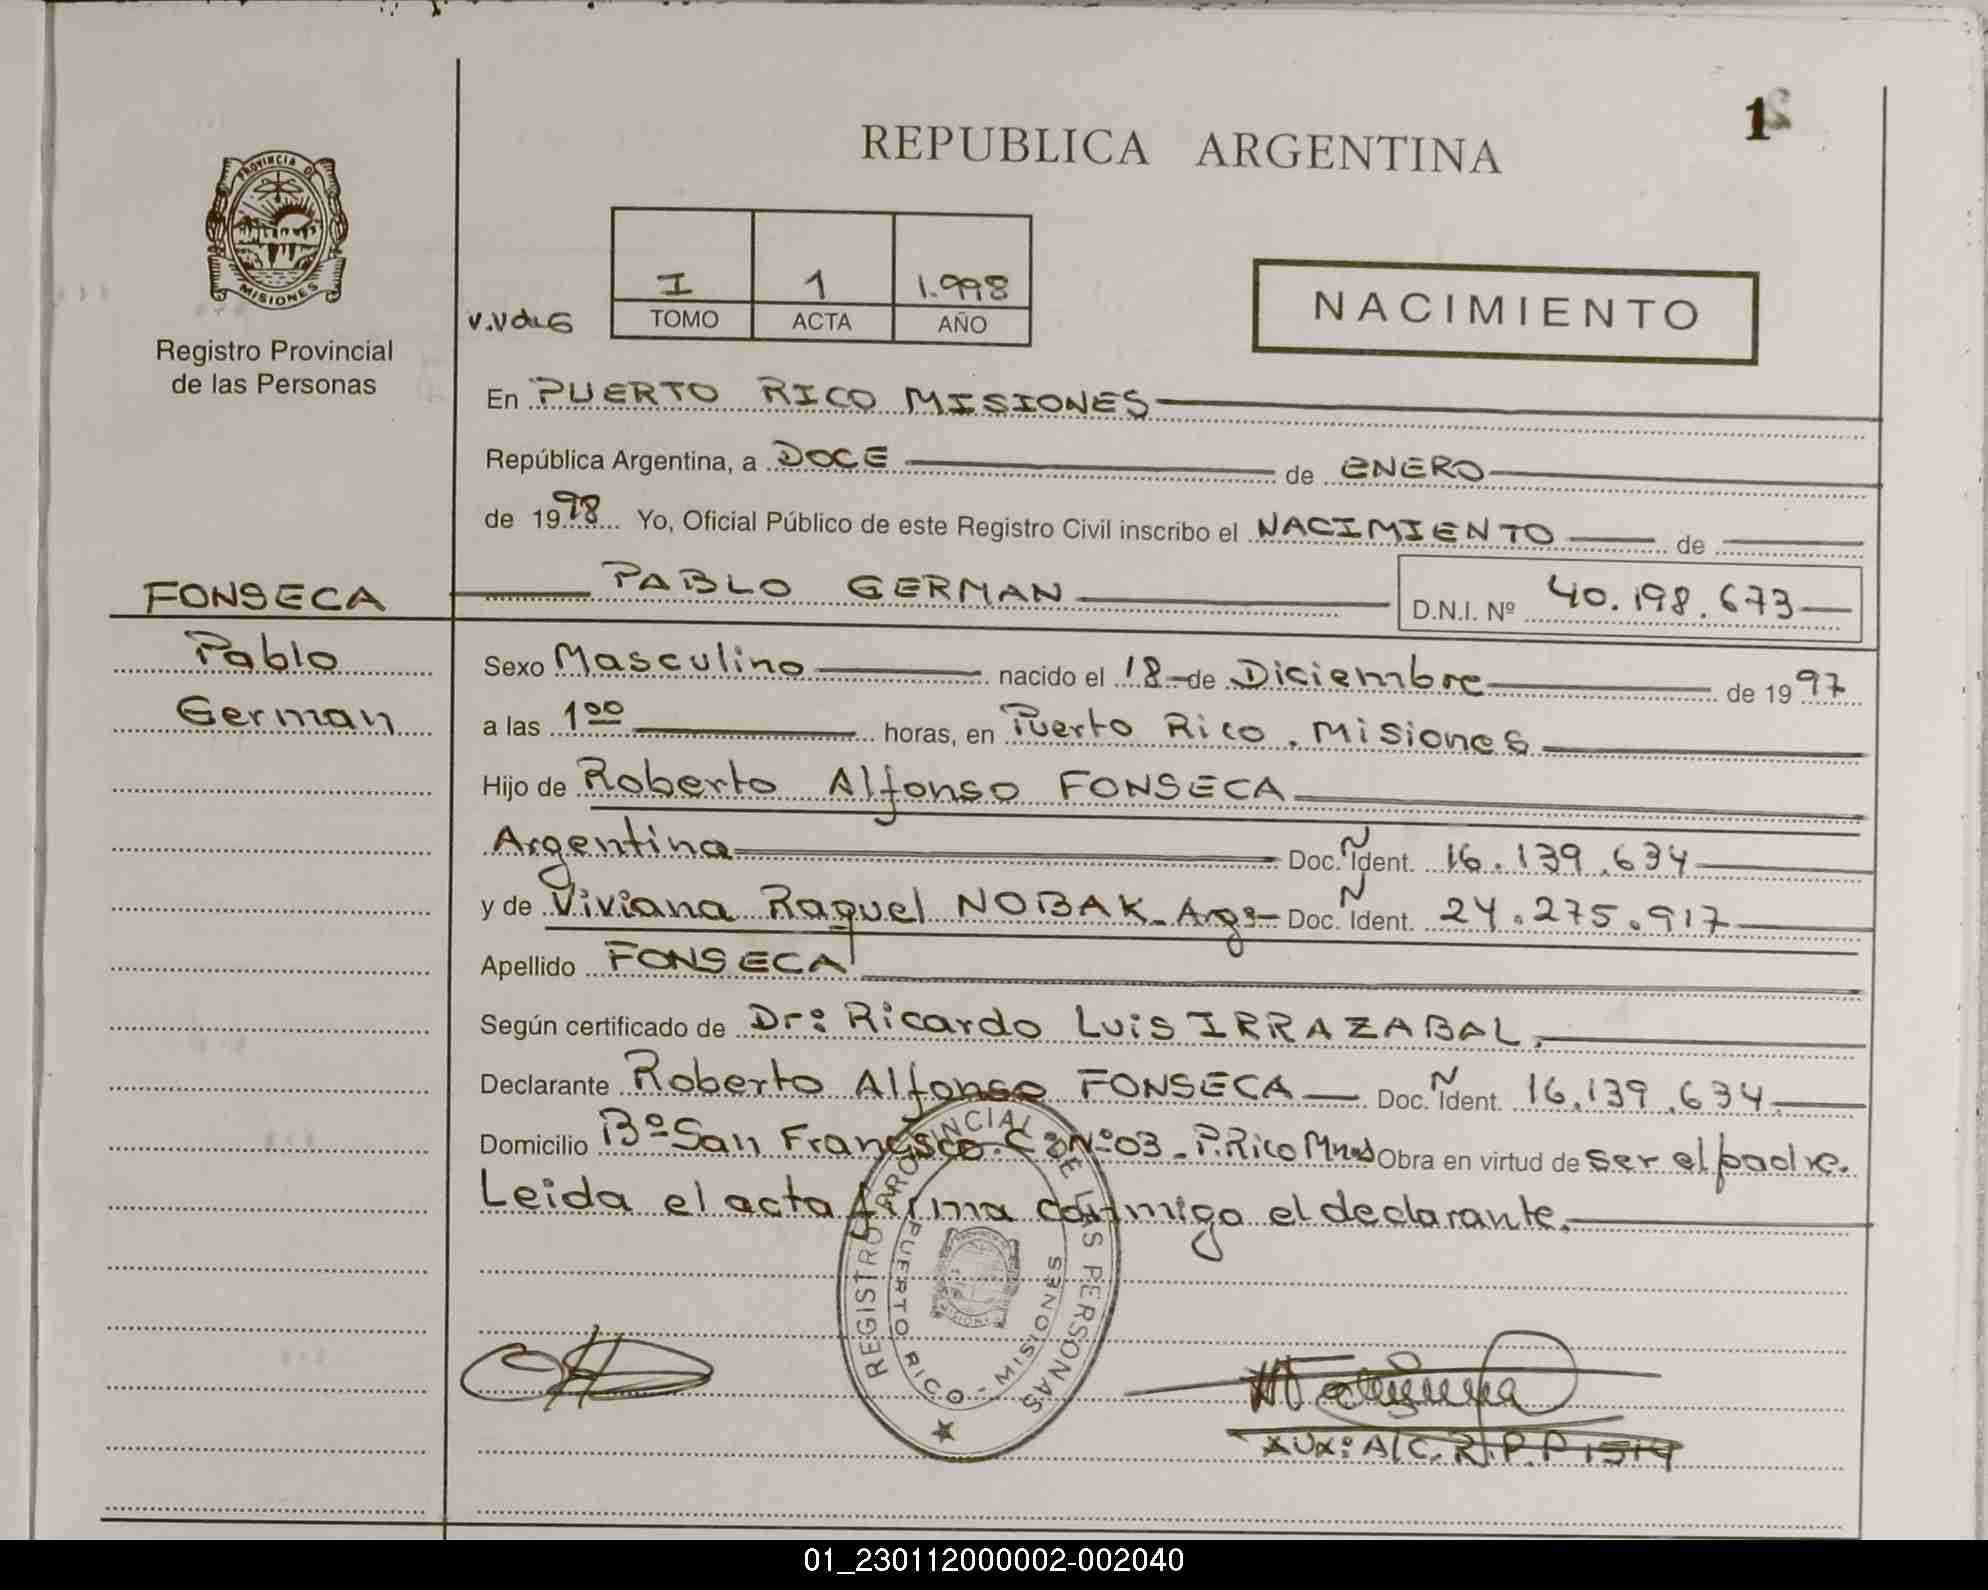 REPUBLICA ARGENTINA
1
PROVINCIA DE
MISIONES
Registro Provincial
de las Personas
I 1 1.998
TOMO ACTA AÑO
NACIMIENTO
En PUERTO RICO MISIONES
República Argentina, a DOCE de ENERO
de 1998 Yo, Oficial Público de este Registro Civil inscribo el NACIMIENTO de
FONSECA
PABLO GERMAN D.N.I. Nº 40.198.673
Pablo
German
Sexo Masculino nacido el 18 de Diciembre de 1997
a las 1 00 horas, en Puerto Rico. Misiones
Hijo de Roberto Alfonso FONSECA
Argentina Doc. Ident. N 16.139.634
y de Viviana Raquel NOBAK - Arg. Doc. Ident. N 24.275.917
Apellido FONSECA
Según certificado de Dr: Ricardo Luis IRRAZABAL.
Declarante Roberto Alfonso FONSECA Doc. Ident. N 16.139.634
Domicilio Bº San Francisco. Nº 03 - P. Rico Obra en virtud de ser el padre.
Leida el acta firma conmigo el declarante.
REGISTRO PROVINCIAL DE LAS PERSONAS
PUERTO RICO - MISIONES
AUX: A/C. R.P.P 1514
01_230112000002-002040